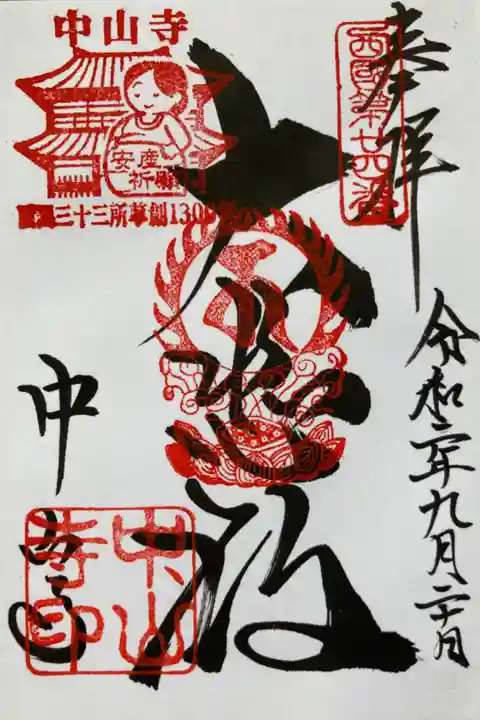 奉拝
西國第廿四番
令和二年九月二十日
大悲殿
中山寺
中山寺印
中山寺
安産
祈願
三十三所草創1300年